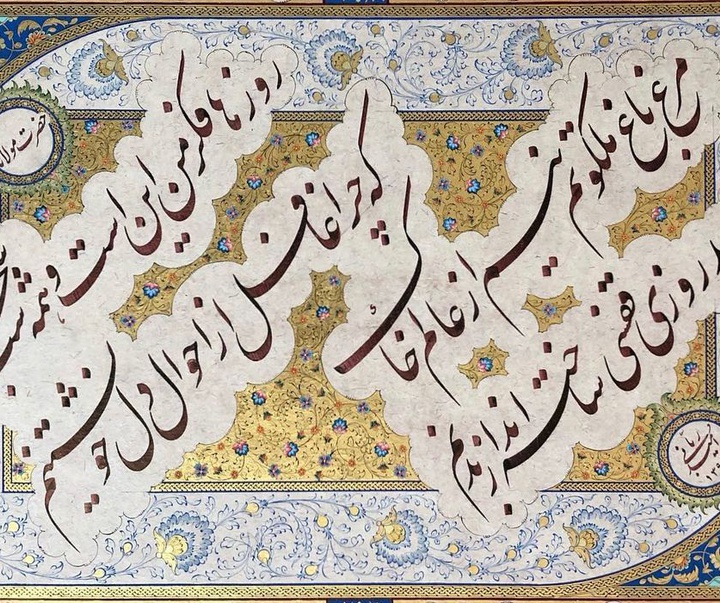 حضرت مولانا
روزها فکر من این است و همه شب
که چرا غافل از احوال دل خویشتنم
مرغ باغ ملکوتم نیم از عالم خاک
روزی قفسی ساخته اند از بدنم